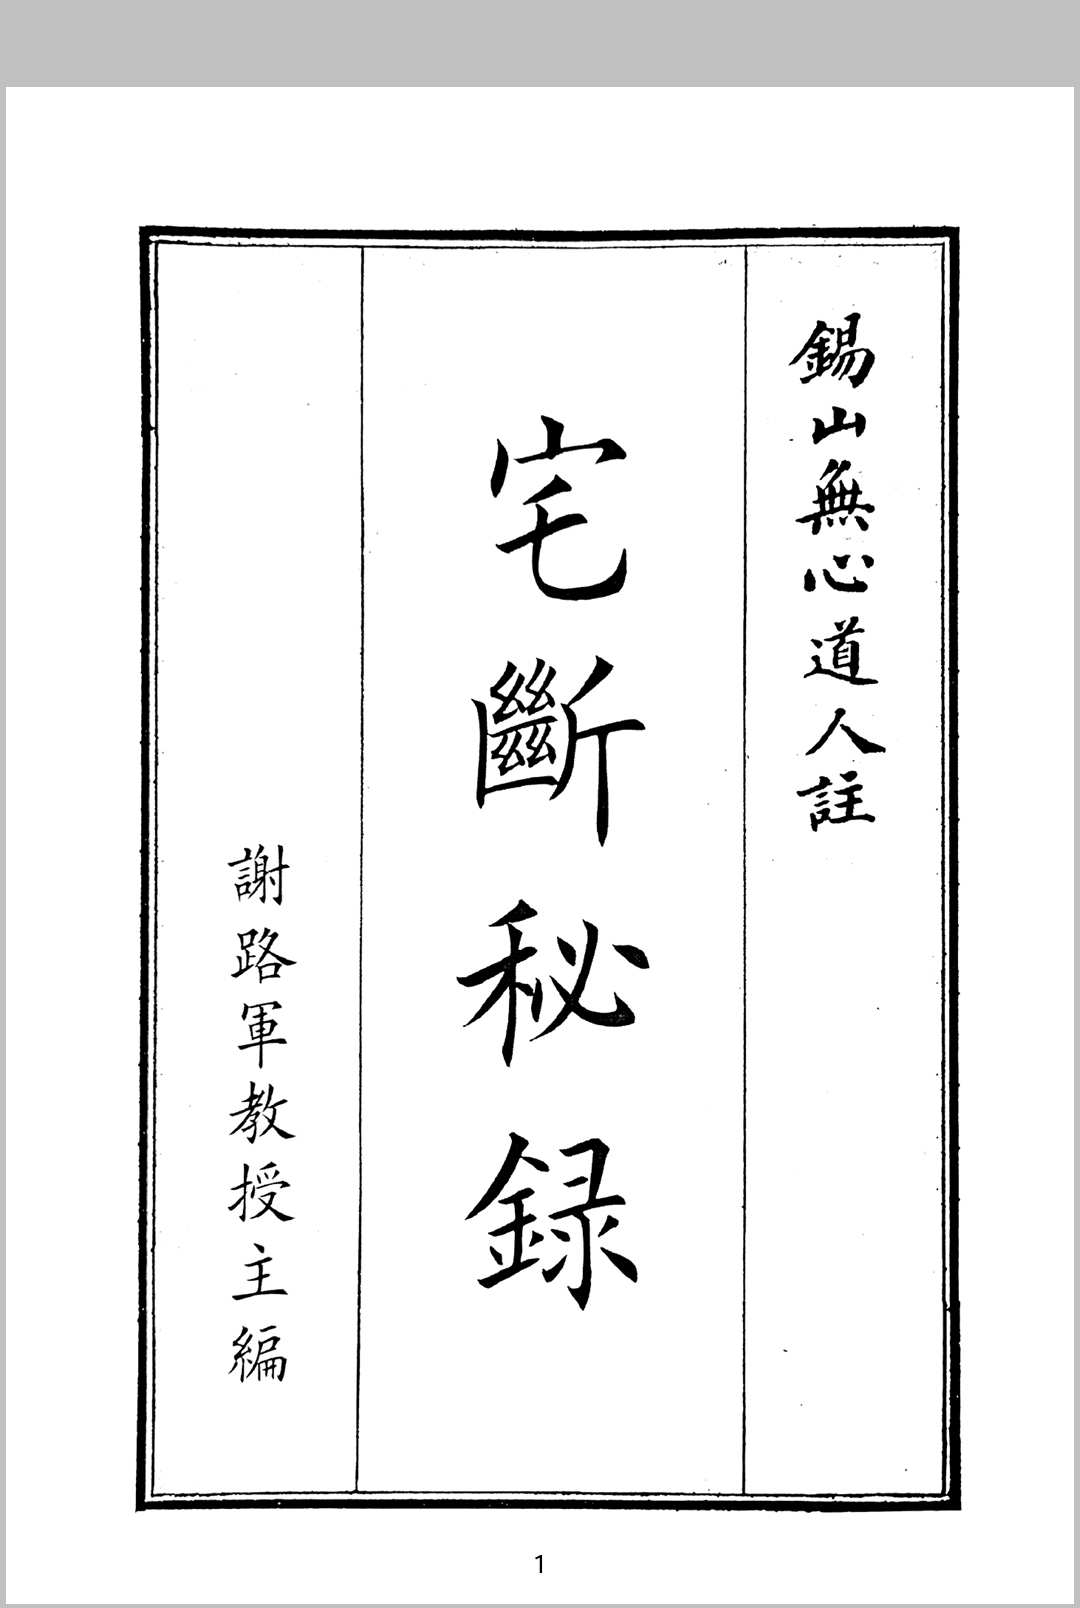 錫山無心道人註
宅斷秘録
謝路軍教授主編
1